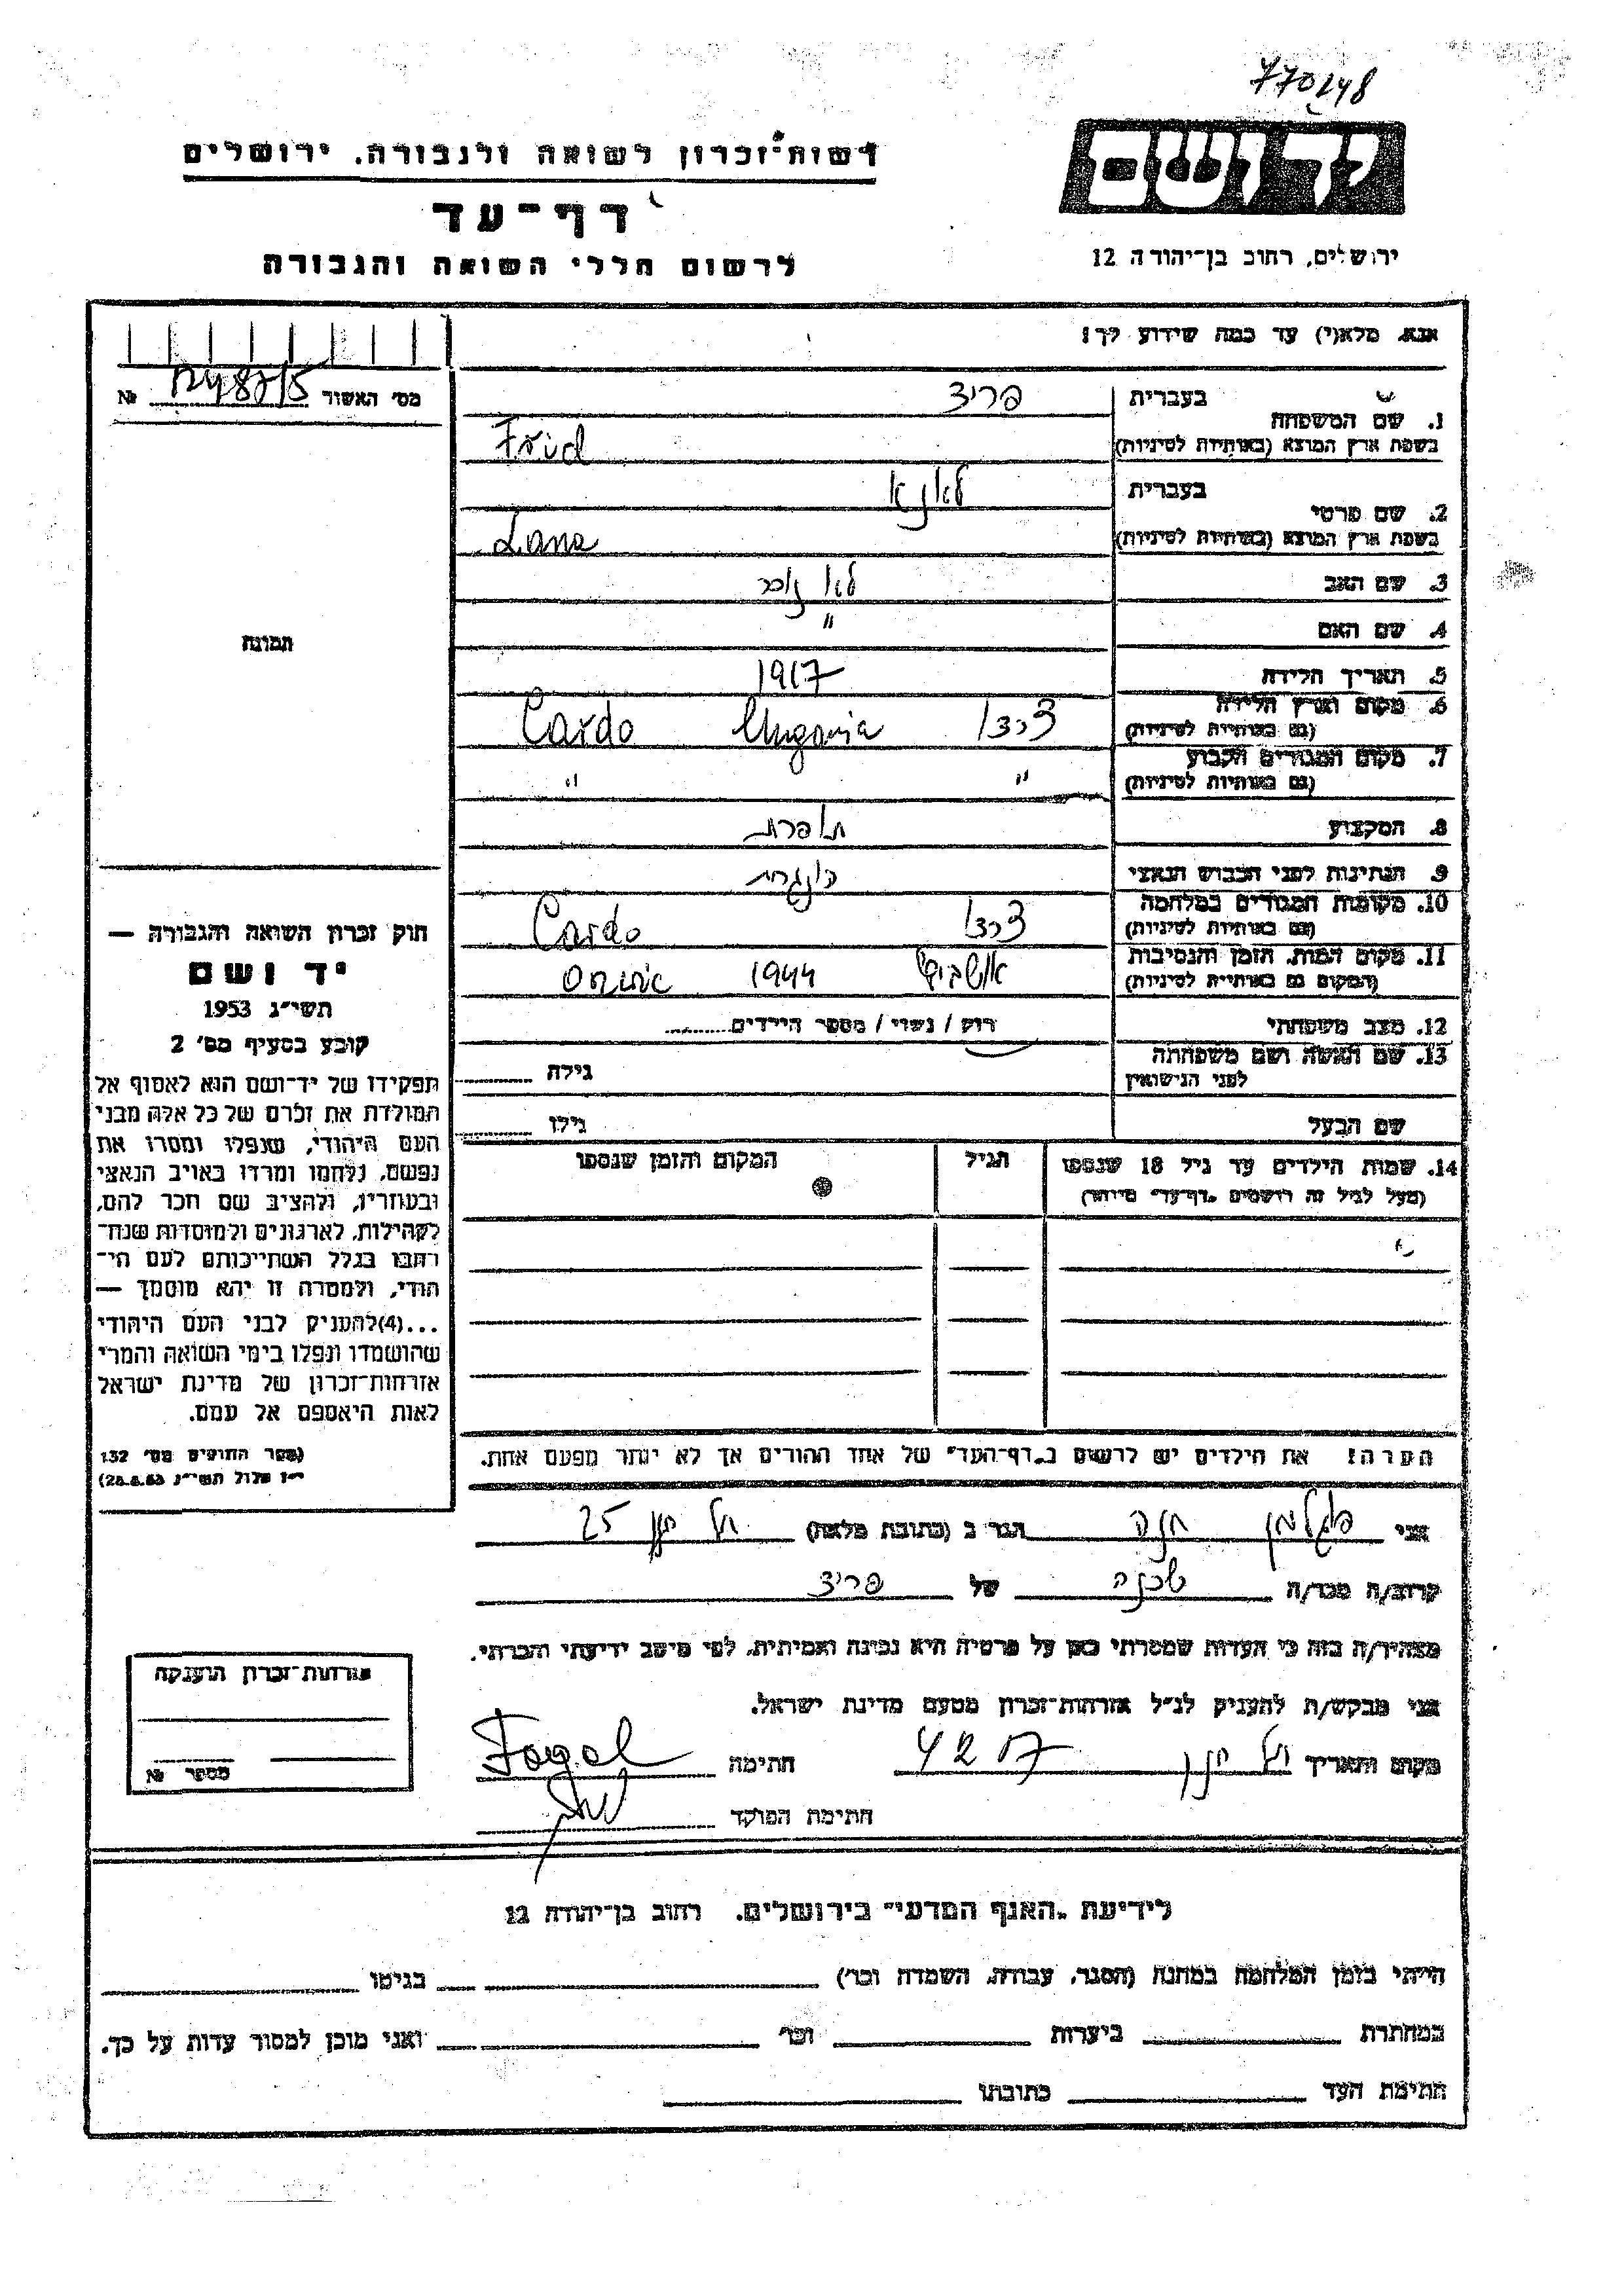 770248
רשות־זכרון לשואה ולגבורה, ירושלים
יד ושם
דף־עד
ירושלים, רחוב בן־יהודה 12
לרשום חללי השואה והגבורה
אנא, מלא(י) עד כמה שידוע לך!
מס׳ האשור №
1. שם המשפחה
בעברית פריד
בשפת ארץ המוצא (באותיות לטיניות) Fried
2. שם פרטי
בעברית לאנא
בשפת ארץ המוצא (באותיות לטיניות) Lana
3. שם האב לא זוכר
4. שם האם "
5. תאריך הלידה 1917
6. מקום וארץ הלידה (גם באותיות לטיניות) Cardo Ungaria
7. מקום המגורים הקבוע (גם באותיות לטיניות) " "
8. המקצוע תופרת
9. הנתינות לפני הכבוש הנאצי הונגרית
10. מקומות המגורים במלחמה (גם באותיות לטיניות) Cardo
11. מקום המות, הזמן והנסיבות (המקום גם באותיות לטיניות) אושביץ 1944
12. מצב משפחתי רוק / נשוי / מספר הילדים
13. שם האשה ושם משפחתה לפני הנישואין גילה
שם הבעל גילו
14. שמות הילדים עד גיל 18 שנספו הגיל המקום והזמן שנספו
(מעל לגיל זה רושמים "דף־עד" מיוחד)
תמונה
חוק זכרון השואה והגבורה —
יד ושם
תשי״ג 1953
קובע בסעיף מס׳ 2
תפקידו של יד־ושם הוא לאסוף אל
המולדת את זכרם של כל אלה מבני
העם היהודי, שנפלו ומסרו את
נפשם, נלחמו ומרדו באויב הנאצי
ובעוזריו, ולהציב שם וזכר להם,
לקהילות, לארגונים ולמוסדות שנח־
רבו בגלל השתייכותם לעם הי־
הודי, ולמטרה זו יהא מוסמך —
...(4)להעניק לבני העם היהודי
שהושמדו ונפלו בימי השואה והמרי
אזרחות־זכרון של מדינת ישראל
לאות היאספם אל עמם.
(ספר החוקים מס׳ 132
י״ז אלול תשי״ג 28.8.53)
הערה! את הילדים יש לרשום ב"דף־העד" של אחד ההורים אך לא יותר מפעם אחת.
אני חנה הגר ב (כתובת מלאה) 25
קרוב/ה מכר/ה שכנה של פריד
מצהיר/ה בזה כי העדות שמסרתי כאן על פרטיה היא נכונה ואמיתית, לפי מיטב ידיעתי והכרתי.
אני מבקש/ת להעניק לנ״ל אזרחות־זכרון מטעם מדינת ישראל.
מקום ותאריך חתימה Fogel
חתימת הפוקד
אזרחות־זכרון הוענקה
מספר №
לידיעת "האגף המדעי" בירושלים, רחוב בן־יהודה 12
הייתי בזמן המלחמה במחנה (הסגר, עבודה, השמדה וכו׳) בגיטו
במחתרת ביערות וכו׳ ואני מוכן למסור עדות על כך.
חתימת העד כתובתו